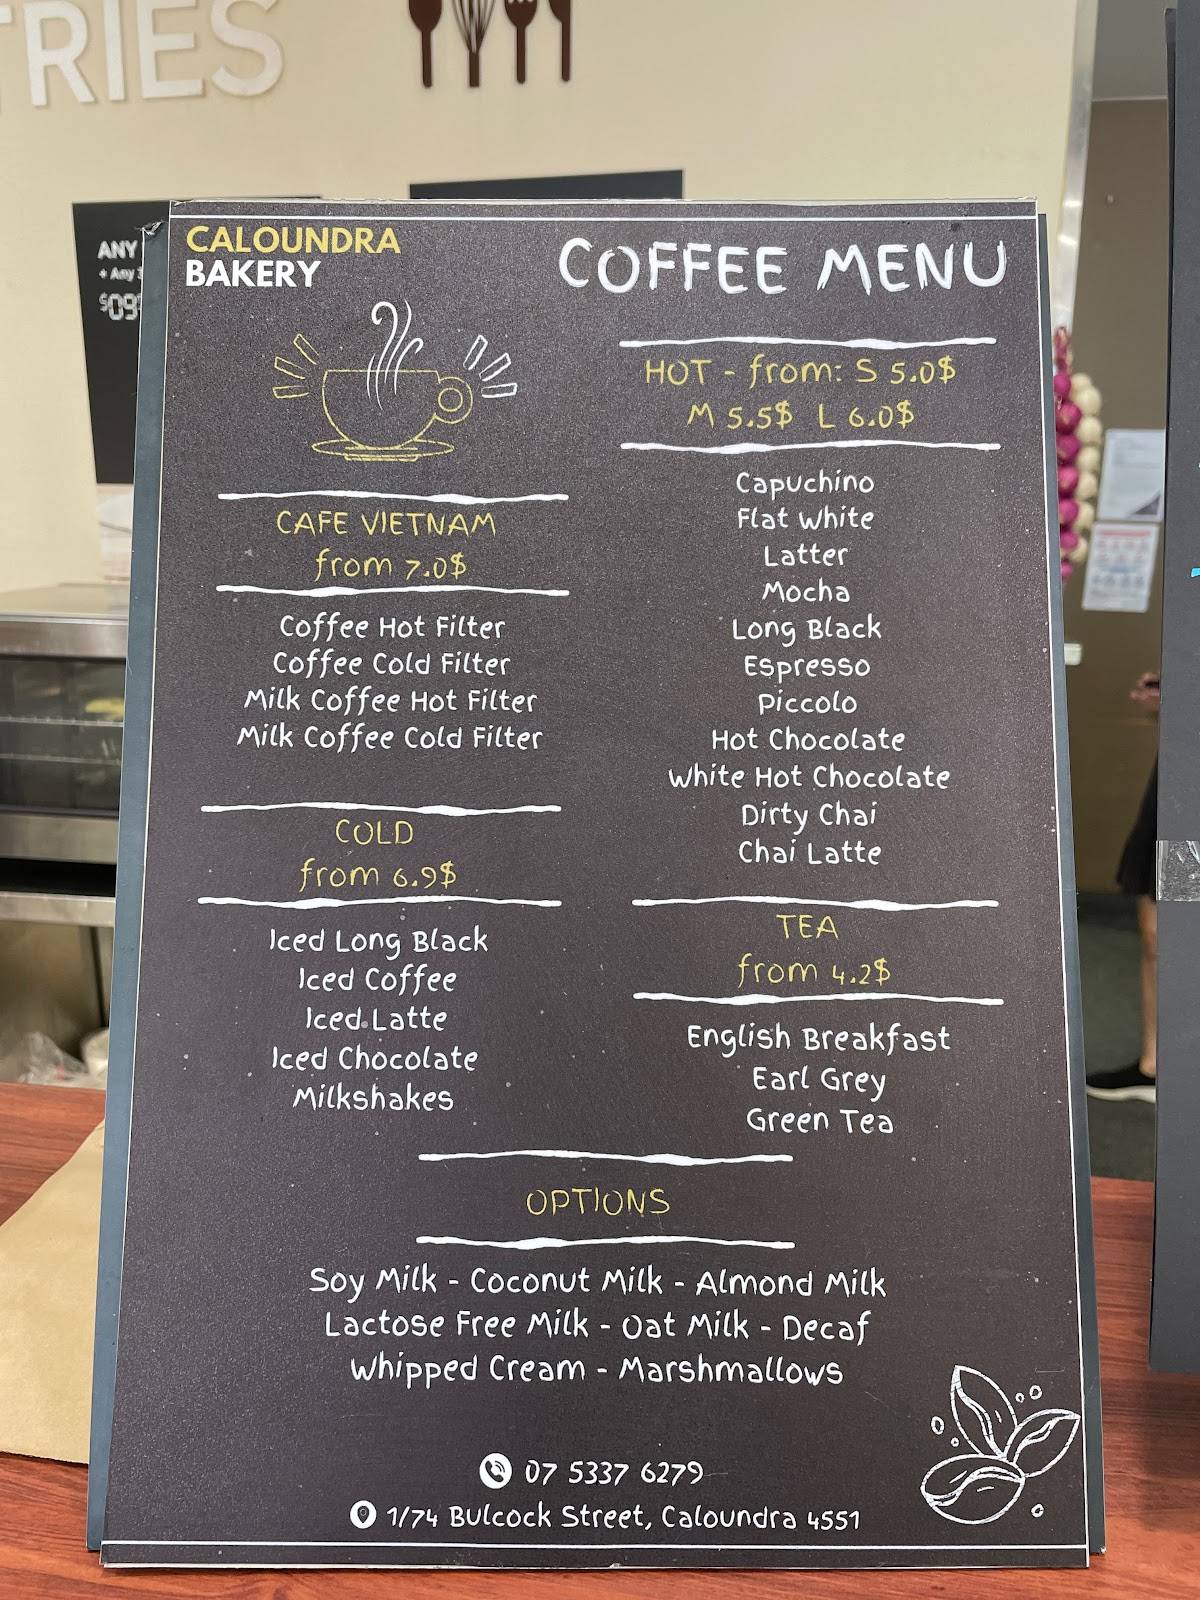 TRIES
ANY
+ Any
CALOUNDRA
BAKERY
COFFEE MENU
HOT - from: S 5.0$
M 5.5$ L 6.0$
Capuchino
Flat White
Latter
Mocha
Long Black
Espresso
Piccolo
Hot Chocolate
White Hot Chocolate
Dirty Chai
Chai Latte
CAFE VIETNAM
from 7.0$
Coffee Hot Filter
Coffee Cold Filter
Milk Coffee Hot Filter
Milk Coffee Cold Filter
COLD
from 6.9$
Iced Long Black
Iced Coffee
Iced Latte
Iced Chocolate
Milkshakes
TEA
from 4.2$
English Breakfast
Earl Grey
Green Tea
OPTIONS
Soy Milk - Coconut Milk - Almond Milk
Lactose Free Milk - Oat Milk - Decaf
Whipped Cream - Marshmallows
07 5337 6279
1/74 Bulcock Street, Caloundra 4551